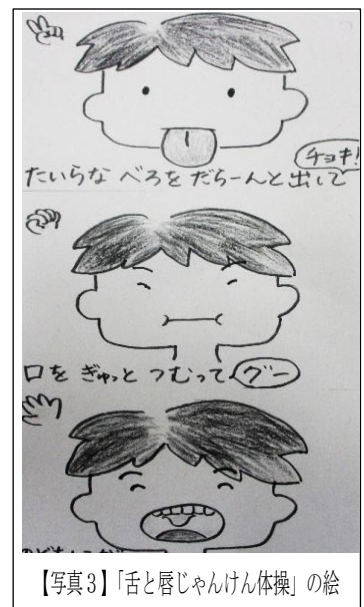 チョキ!
たいらな べろを だらーんと出して
口を ぎゅっと つむって グー
【写真3】「舌と唇じゃんけん体操」の絵